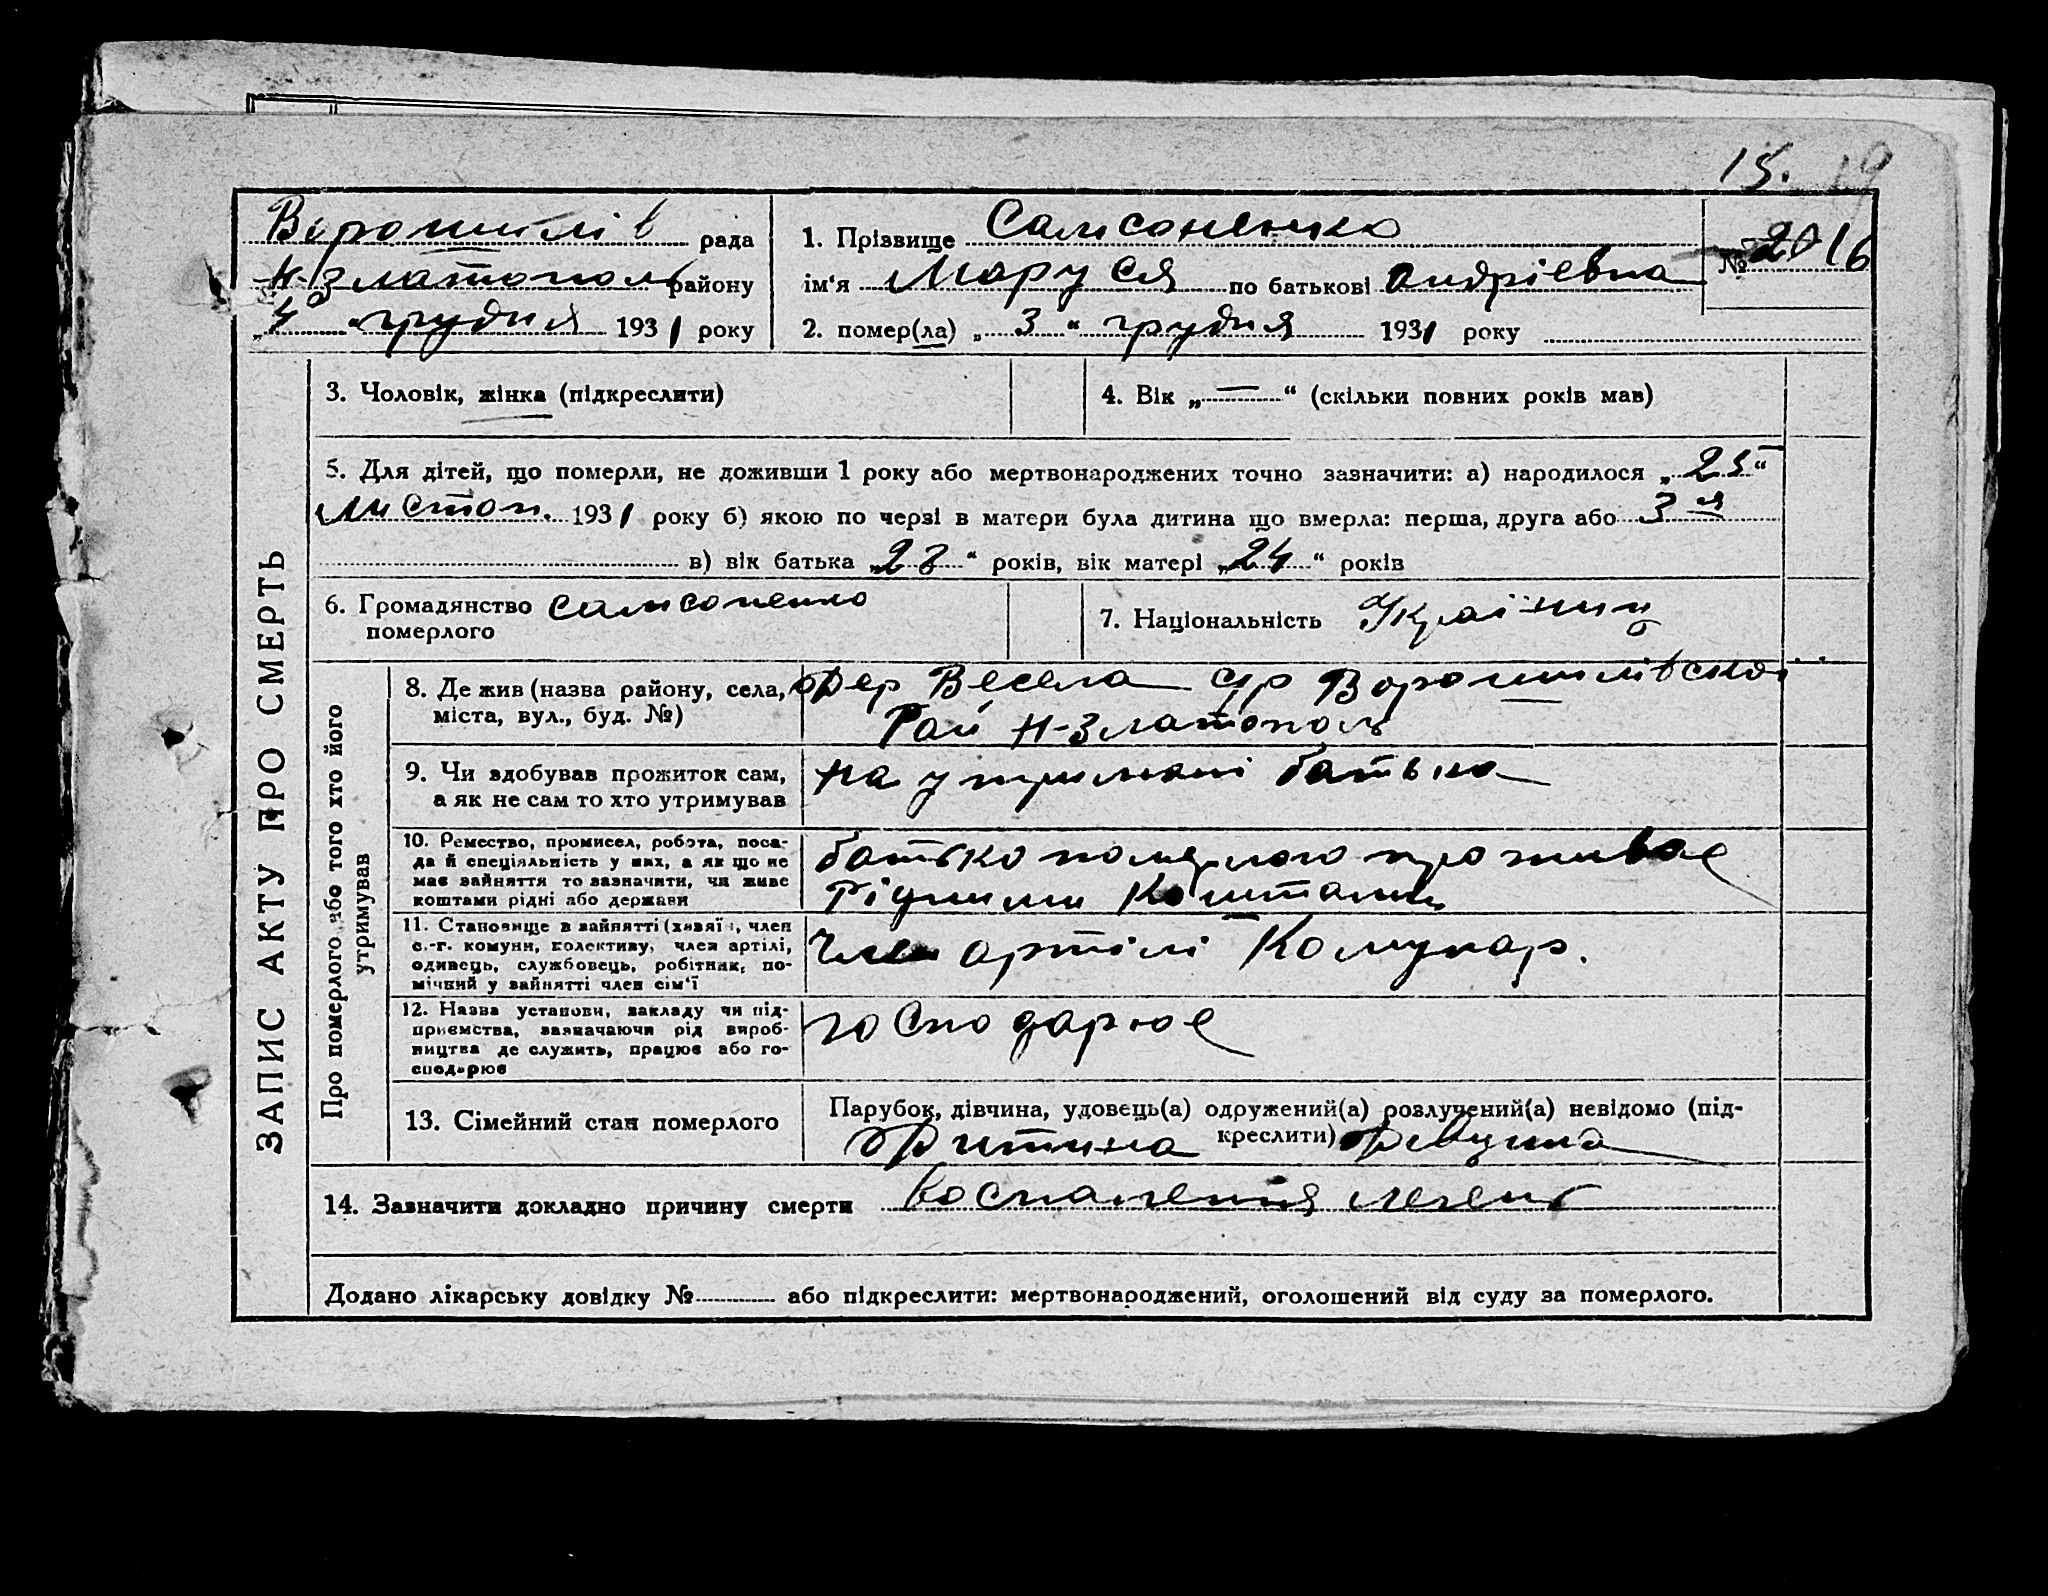 15. 19
Ворошилів рада
1. Прізвище Самсоненко
Н-Златополь району
ім'я Маруся по батькові Андріевна
№ 20 16
„4" грудня 1931 року
2. помер(ла) „3" грудня 1931 року
ЗАПИС АКТУ ПРО СМЕРТЬ
3. Чоловік, жінка (підкреслити)
4. Вік „—" (скільки повних років мав)
5. Для дітей, що померли, не доживши 1 року або мертвонароджених точно зазначити: а) народилося „25"
Листоп. 1931 року б) якою по черзі в матери була дитина що вмерла: перша, друга або 3 я
в) вік батька „23" років, вік матері „24" років
6. Громадянство Самсоненко
померлого
7. Національність Українц
Про померлого або того хто його
утримував
8. Де жив (назва району, села,
міста, вул., буд. №)
Дер Весела с/р Ворошилівської
Рай Н-Златополь
9. Чи здобував прожиток сам,
а як не сам то хто утримував
На утримані батька
10. Ремество, промисел, робота, поса-
да й спеціяльність у них, а як що не
має заняття то зазначити, чи живе
коштами рідні або держави
батько померлого проживае
Рідними Коштами
11. Становище в занятті (хазяїн, член
с.-г. комуни, колективу, член артілі,
одинець, службовець, робітник, по-
мічний у занятті член сім'ї
Член артілі Комунар.
12. Назва установи, закладу чи під-
приємства, зазначаючи рід вироб-
ництва де служить, працює або го-
сподарює
господарюе
13. Сімейний стан померлого
Парубок, дівчина, удовець(а) одружений(а) розлучений(а) невідомо (під-
креслити)
Дитина Девчина
14. Зазначити докладно причину смерти воспаления легень
Додано лікарську довідку № або підкреслити: мертвонароджений, оголошений від суду за померлого.